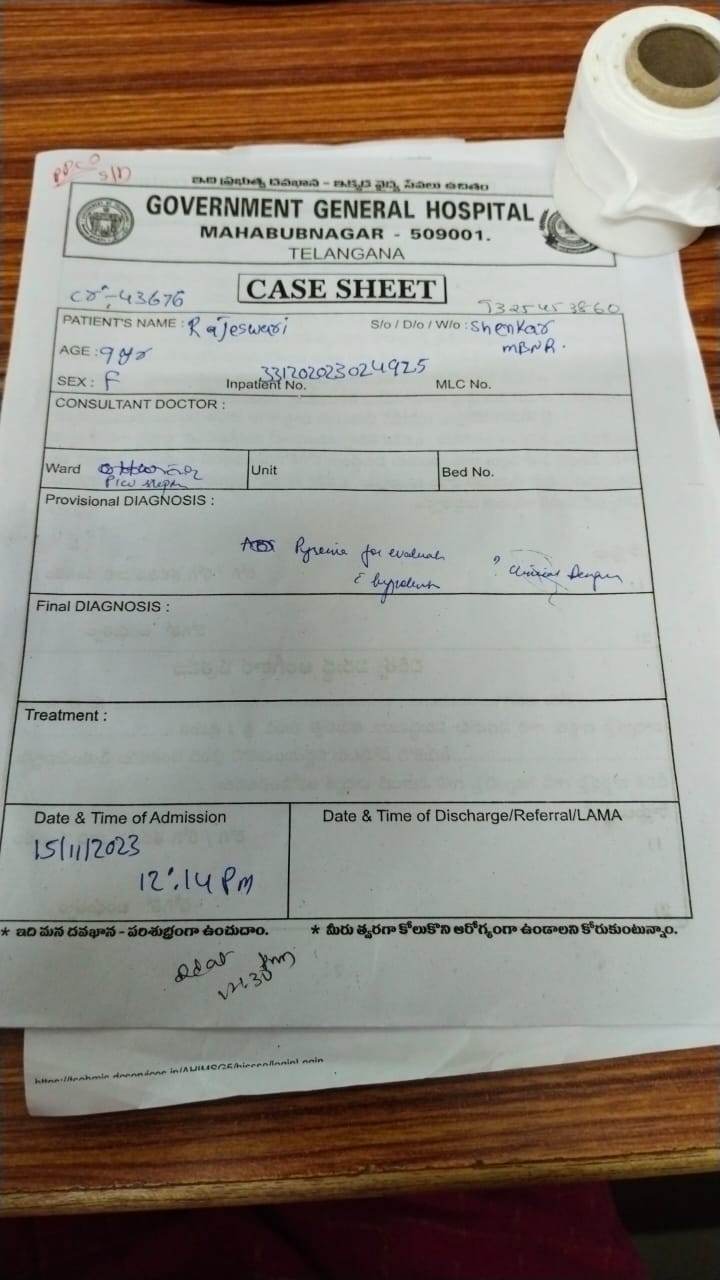 S/N
ఇది ప్రభుత్వ దవఖాన - ఇక్కడ వైద్య సేవలు ఉచితం
GOVERNMENT GENERAL HOSPITAL
MAHABUBNAGAR - 509001.
TELANGANA
CASE SHEET
Cr:-43676
PATIENT'S NAME : Rajeswari S/o / D/o / W/o : Shenkar
MBNR.
AGE : 9 yr
SEX : F Inpatient No. 331202023024925 MLC No.
CONSULTANT DOCTOR :
Ward Unit Bed No.
PICU
Provisional DIAGNOSIS :
Pyrexia for evaluation ? Clinical Dengue
Final DIAGNOSIS :
Treatment :
Date & Time of Admission Date & Time of Discharge/Referral/LAMA
15/11/2023
12:14 Pm
* ఇది మన దవఖాన - పరిశుభ్రంగా ఉంచుదాం. * మీరు త్వరగా కోలుకొని ఆరోగ్యంగా ఉండాలని కోరుకుంటున్నాం.
12.30 Pm